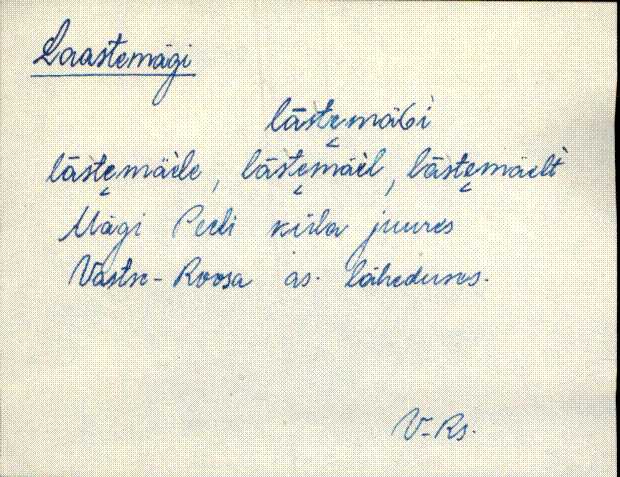 Laastemägi
lāste̬mäGi
lāste̬mäile, lāste̬mäil, lāste̬mäilt
Mägi Peeli küla juures
Vastse-Roosa as. läheduses.
V-Rs.